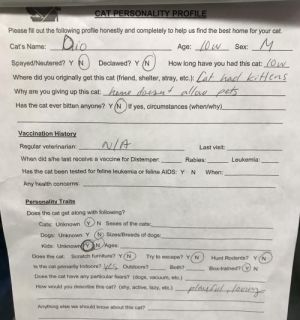 CAT PERSONALITY PROFILE
Please fill out the following profile honestly and completely to help us find the best home for your cat.
Cat's Name: Dio Age: 10w Sex: M
Spayed/Neutered? Y N Declawed? Y N How long have you had this cat: 10w
Where did you originally get this cat (friend, shelter, stray, etc.): Cat had kittens
Why are you giving up this cat: home doesn't allow pets
Has the cat ever bitten anyone? Y N If yes, circumstances (when/why)
Vaccination History
Regular veterinarian: N/A Last visit:
When did s/he last receive a vaccine for Distemper: Rabies: Leukemia:
Has the cat been tested for feline leukemia or feline AIDS: Y N When:
Any health concerns:
Personality Traits
Does the cat get along with following?
Cats: Unknown Y N Sexes of the cats:
Dogs: Unknown Y N Sizes/Breeds of dogs:
Kids: Unknown Y N Ages:
Does the cat: Scratch furniture? Y N Try to escape? Y N Hunt Rodents? Y N
Is the cat primarily Indoors? yes Outdoors? Both? Box-trained? Y N
Does the cat have any particular fears? (dogs, vacuum, etc.)
How would you describe this cat? (shy, active, lazy, etc.) playful, loving
Anything else we should know about this cat?